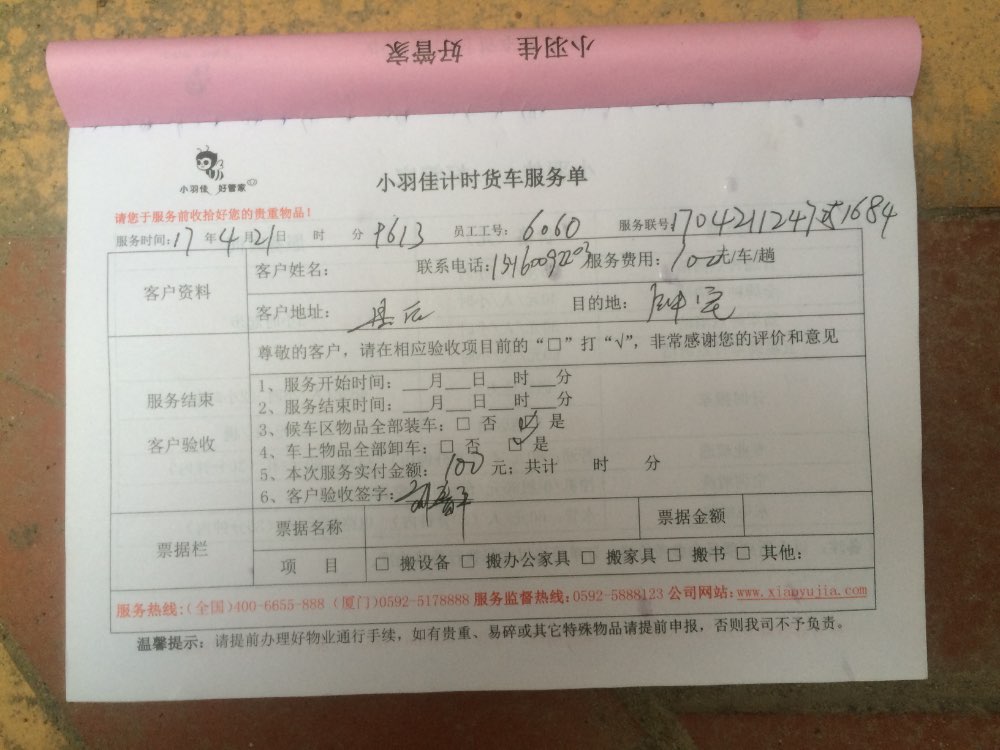 小羽佳 好管家
小羽佳 好管家
小羽佳计时货车服务单
请您于服务前收拾好您的贵重物品！
服务时间：17年4月21日 时 分 9613 员工工号：6060 服务联号：1704211247 1684
客户资料
客户姓名： 联系电话： 服务费用：100元/车/趟
客户地址： 目的地：
尊敬的客户，请在相应验收项目前的“□”打“√”，非常感谢您的评价和意见
服务结束
客户验收
1、服务开始时间：___月___日___时___分
2、服务结束时间：___月___日___时___分
3、候车区物品全部装车：□ 否 ☑ 是
4、车上物品全部卸车：□ 否 ☑ 是
5、本次服务实付金额：100元；共计 时 分
6、客户验收签字：
票据栏
票据名称 票据金额
项 目 □ 搬设备 □ 搬办公家具 □ 搬家具 □ 搬书 □ 其他：
服务热线：(全国)400-6655-888 (厦门)0592-5178888 服务监督热线：0592-5888123 公司网站：www.xiaoyujia.com
温馨提示：请提前办理好物业通行手续，如有贵重、易碎或其它特殊物品请提前申报，否则我司不予负责。